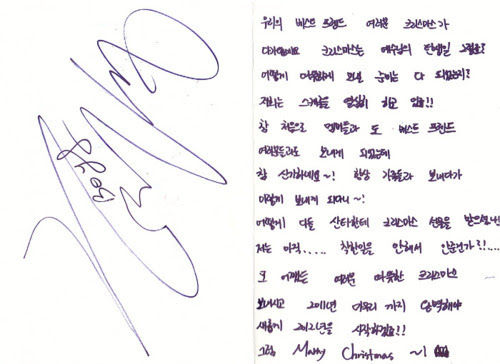 우리의 베스트 프렌드 여러분 크리스마스가
다가왔네요 크리스마스는 예수님의 탄생일
어떻게 따뜻하게 보낼 준비는 다 되었는지?
저희는 스케줄을 열심히 하고 있음!!
참 처음으로 멤버들과 또 베스트 프렌드
여러분들과도 보내게 되었는데
참 신기하네요~! 항상 가족들과 보내다가
이렇게 보내게 되다니~!
어떻게 다들 산타한테 크리스마스 선물을
저는 아직..... 착한일을 안해서 안온건가?!....
모 어쨌든 여러분 따뜻한 크리스마스
보내시고 2011년 마무리 까지
새롭게 2012년을 시작하겠죠?!
그럼 Marry Christmas ~!